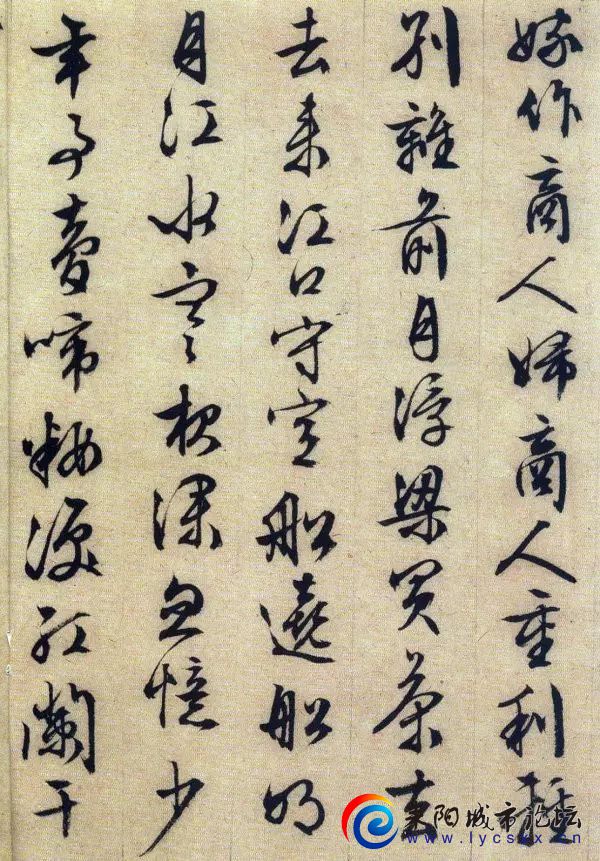 嫁作商人婦商人重利輕
別離前月浮梁買茶去
去来江口守空船遶船明
月江水寒夜深忽憶少
年事夢啼粧淚紅瀾干
耒阳城市论坛